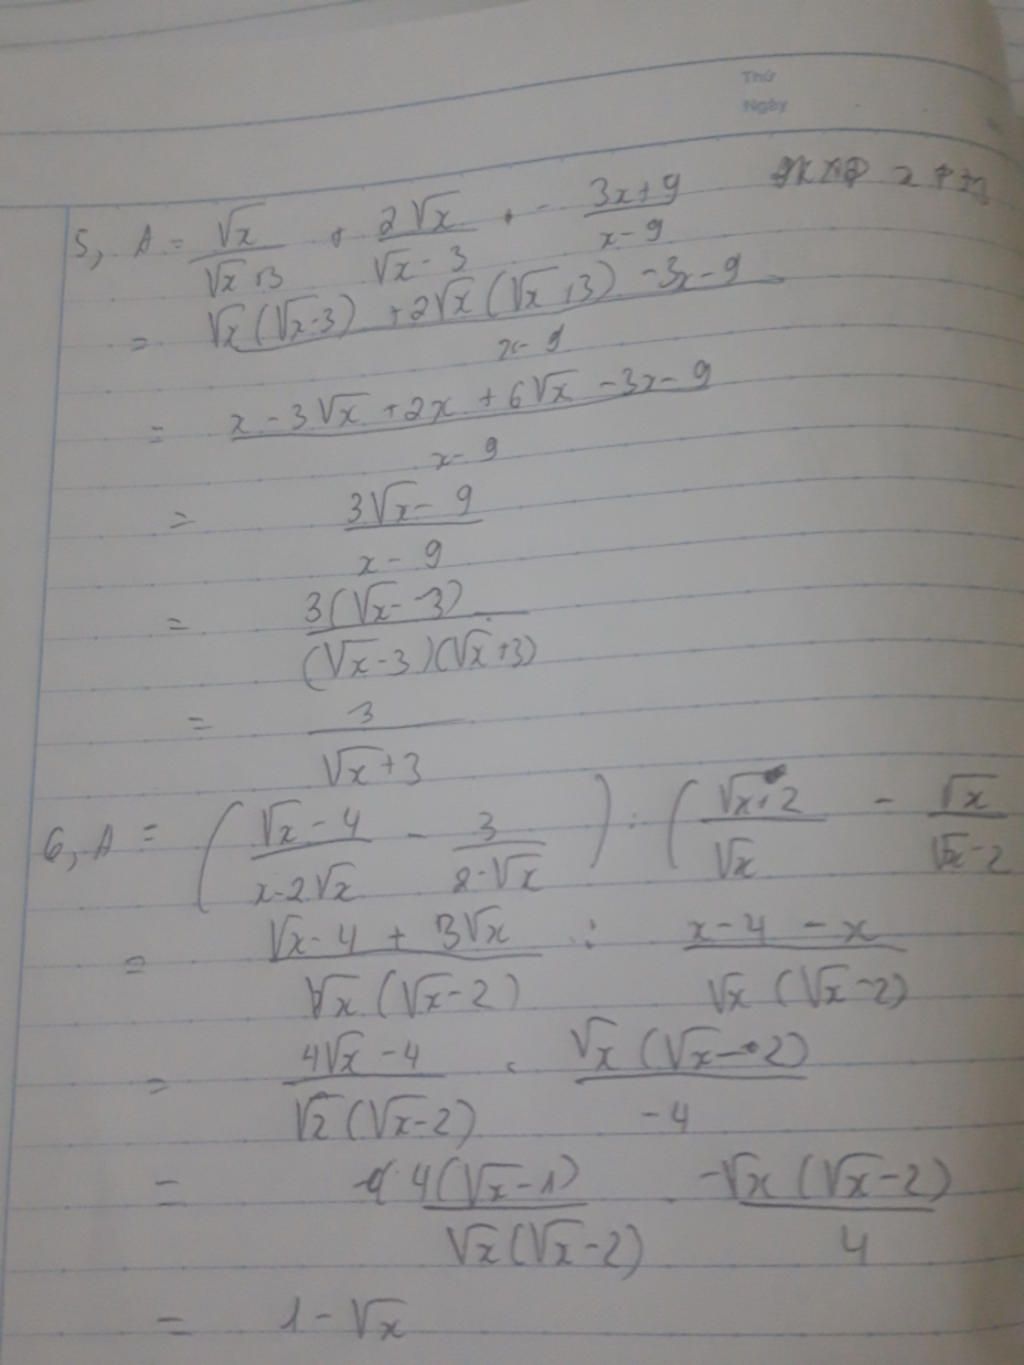 Thứ
Ngày
5, A = √x/(√x+3) + 2√x/(√x-3) - (3x+9)/(x-9)
= (√x(√x-3) + 2√x(√x+3) - 3x - 9)/(x-9)
= (x - 3√x + 2x + 6√x - 3x - 9)/(x-9)
= (3√x - 9)/(x-9)
= 3(√x-3)/((√x-3)(√x+3))
= 3/(√x+3)
6, A = ((√x-4)/(x-2√x) - 3/(2-√x)) : ((√x+2)/√x - √x/(√x-2)
= (√x-4 + 3√x)/(√x(√x-2)) : (x-4-x)/(√x(√x-2))
= (4√x-4)/(√2(√x-2)) . √x(√x-2)/-4
= 4(√x-1)/(√x(√x-2)) . -√x(√x-2)/4
= 1-√x